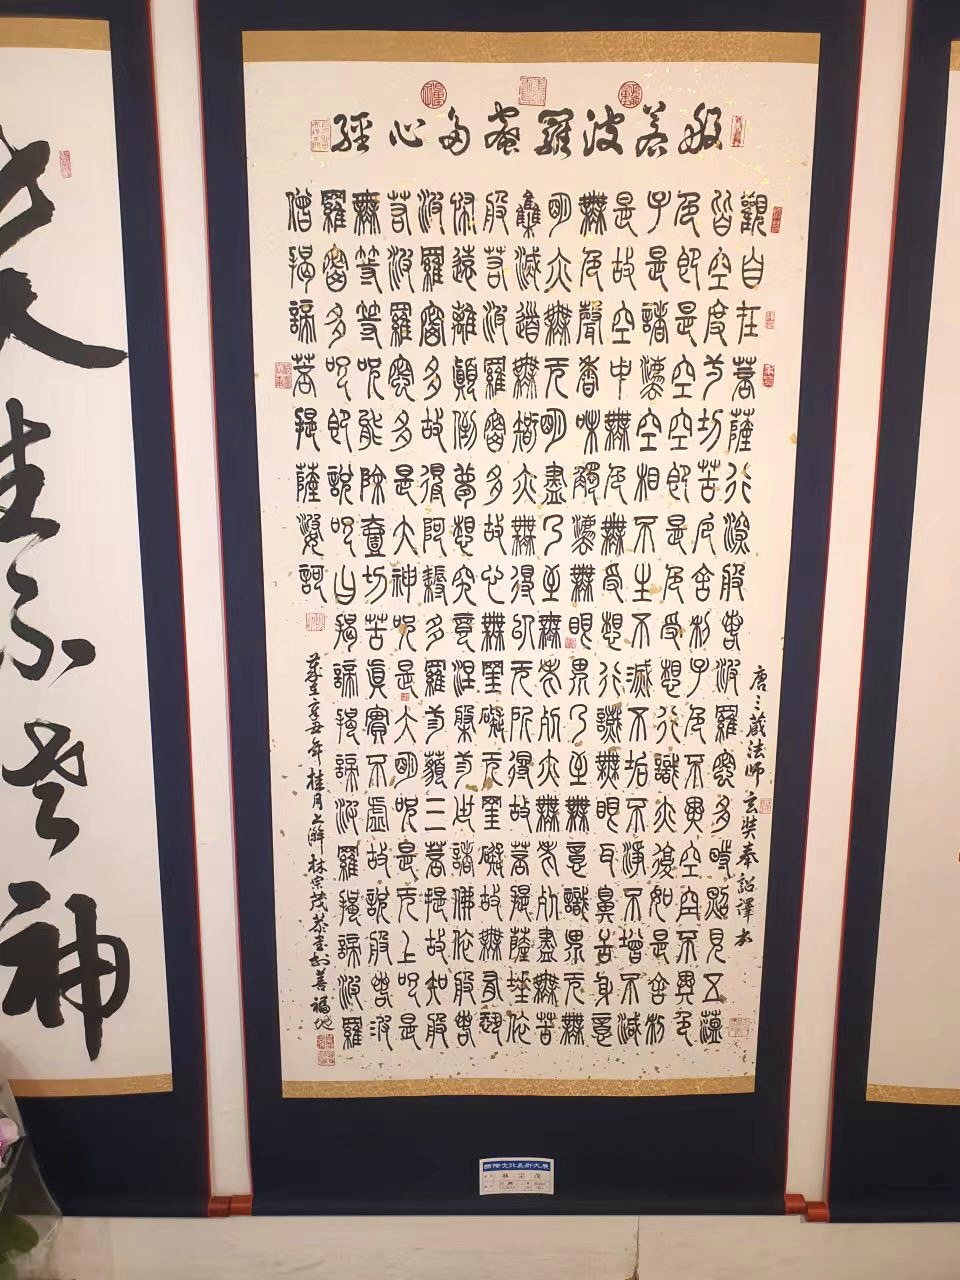 般若波羅蜜多心經
觀自在菩薩行深般若波羅蜜多時照見五蘊
皆空度一切苦厄舍利子色不異空空不異色
色即是空空即是色受想行識亦復如是舍利
子是諸法空相不生不滅不垢不淨不增不減
是故空中無色無受想行識無眼耳鼻舌身意
無色聲香味觸法無眼界乃至無意識界无無
明亦無无明盡乃至無老死亦無老死盡無苦
集滅道無智亦無得以无所得故菩提薩埵依
般若波羅蜜多故心無罣礙无罣礙故無有恐
怖遠離顛倒夢想究竟涅槃三世諸佛依般若
波羅蜜多故得阿耨多羅三藐三菩提故知般
若波羅蜜多是大神呪是大明呪是无上呪是
無等等呪能除一切苦真實不虛故說般若波
羅蜜多呪即說呪曰揭諦揭諦波羅揭諦波羅
僧揭諦菩提薩婆訶
唐三藏法師玄奘奉詔譯本
辛丑年桂月上澣林宗茂恭書於善福地
國際文化美術大展
林宗茂